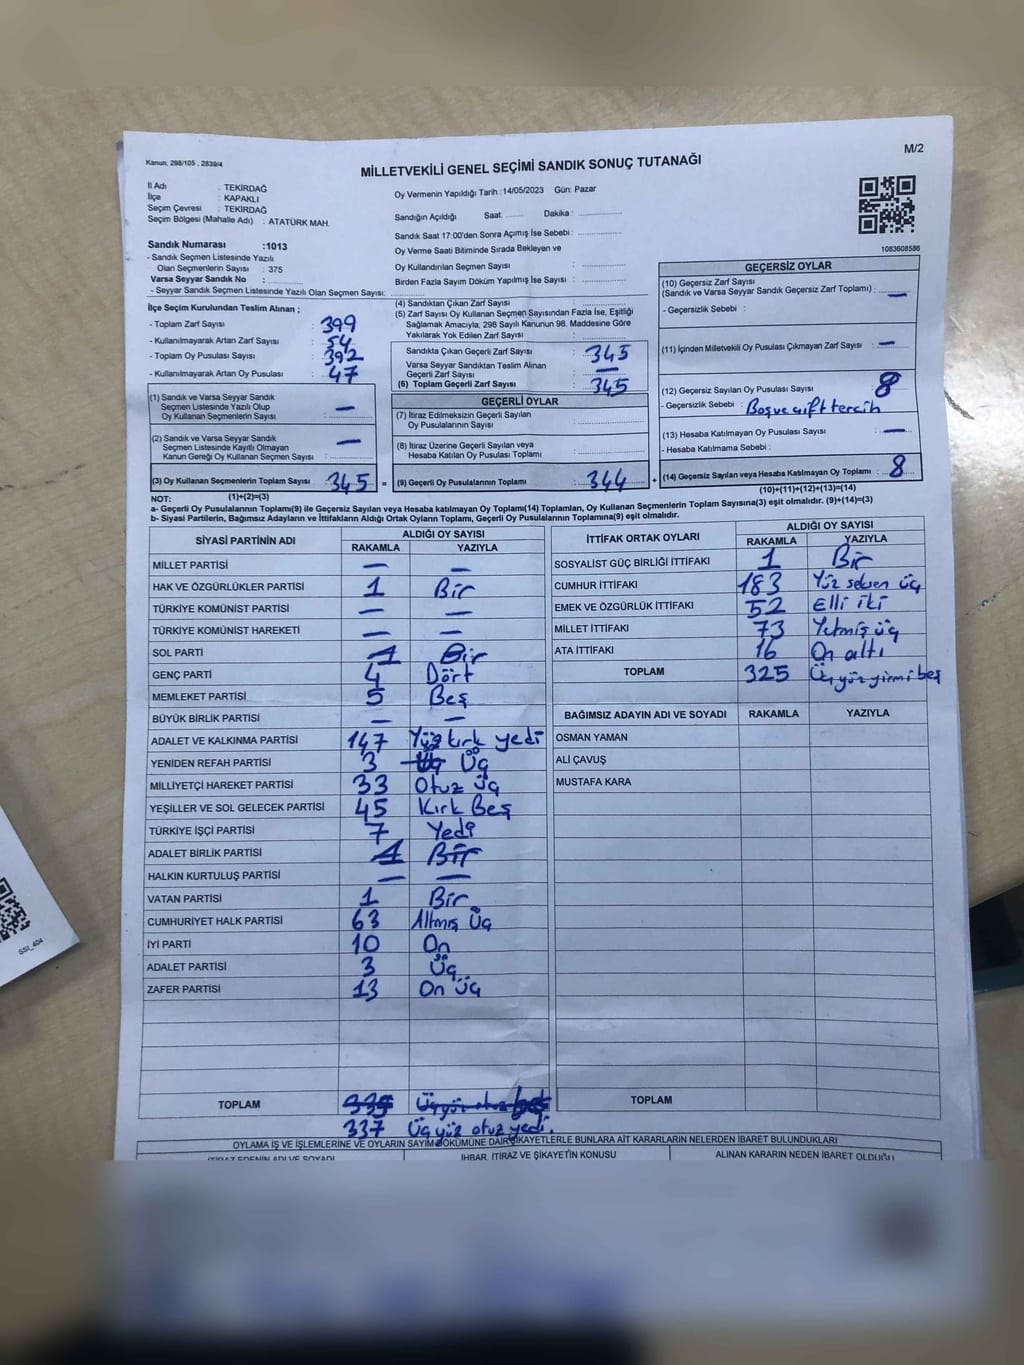 Kanun, 298/105 , 2839/4
MİLLETVEKİLİ GENEL SEÇİMİ SANDIK SONUÇ TUTANAĞI
M/2
İl Adı : TEKİRDAĞ
İlçe : KAPAKLI
Seçim Çevresi : TEKİRDAĞ
Seçim Bölgesi (Mahalle Adı) : ATATÜRK MAH.
Sandık Numarası :1013
- Sandık Seçmen Listesinde Yazılı
Olan Seçmenlerin Sayısı : 375
Varsa Seyyar Sandık No :
- Seyyar Sandık Seçmen Listesinde Yazılı Olan Seçmen Sayısı:
Oy Vermenin Yapıldığı Tarih :14/05/2023 Gün: Pazar
Sandığın Açıldığı Saat: Dakika :
Sandık Saat 17:00'den Sonra Açımış İse Sebebi :
Oy Verme Saati Bitiminde Sırada Bekleyen ve
Oy Kullandırılan Seçmen Sayısı :
Birden Fazla Sayım Döküm Yapılmış İse Sayısı :
1083608586
İlçe Seçim Kurulundan Teslim Alınan ;
- Toplam Zarf Sayısı : 399
- Kullanılmayarak Artan Zarf Sayısı : 54
- Toplam Oy Pusulası Sayısı : 392
- Kullanılmayarak Artan Oy Pusulası : 47
(1) Sandık ve Varsa Seyyar Sandık
Seçmen Listesinde Yazılı Olup
Oy Kullanan Seçmenlerin Sayısı : —
(2) Sandık ve Varsa Seyyar Sandık
Seçmen Listesinde Kayıtlı Olmayan
Kanun Gereği Oy Kullanan Seçmen Sayısı : —
(3) Oy Kullanan Seçmenlerin Toplam Sayısı : 345 =
(1)+(2)=(3)
(4) Sandıktan Çıkan Zarf Sayısı :
(5) Zarf Sayısı Oy Kullanan Seçmen Sayısından Fazla İse, Eşitliği
Sağlamak Amacıyla, 298 Sayılı Kanunun 98. Maddesine Göre
Yakılarak Yok Edilen Zarf Sayısı :
Sandıkta Çıkan Geçerli Zarf Sayısı : 345
Varsa Seyyar Sandıktan Teslim Alınan
Geçerli Zarf Sayısı : —
(6) Toplam Geçerli Zarf Sayısı : 345
GEÇERLİ OYLAR
(7) İtiraz Edilmeksizin Geçerli Sayılan
Oy Pusulalarının Sayısı :
(8) İtiraz Üzerine Geçerli Sayılan veya
Hesaba Katılan Oy Pusulası Toplamı :
(9) Geçerli Oy Pusulalarının Toplamı : 344 +
GEÇERSİZ OYLAR
(10) Geçersiz Zarf Sayısı
(Sandık ve Varsa Seyyar Sandık Geçersiz Zarf Toplamı) : —
- Geçersizlik Sebebi :
(11) İçinden Milletvekili Oy Pusulası Çıkmayan Zarf Sayısı : —
(12) Geçersiz Sayılan Oy Pusulası Sayısı : 8
- Geçersizlik Sebebi : Boş ve çift tercih
(13) Hesaba Katılmayan Oy Pusulası Sayısı : —
- Hesaba Katılmama Sebebi :
(14) Geçersiz Sayılan veya Hesaba Katılmayan Oy Toplamı : 8
(10)+(11)+(12)+(13)=(14)
NOT:
a- Geçerli Oy Pusulalarının Toplamı(9) ile Geçersiz Sayılan veya Hesaba katılmayan Oy Toplamı(14) Toplamları, Oy Kullanan Seçmenlerin Toplam Sayısına(3) eşit olmalıdır. (9)+(14)=(3)
b- Siyasi Partilerin, Bağımsız Adayların ve İttifakların Aldığı Oyların Toplamı, Geçerli Oy Pusulalarının Toplamına(9) eşit olmalıdır.
SİYASİ PARTİNİN ADI ALDIĞI OY SAYISI
RAKAMLA YAZIYLA
MİLLET PARTİSİ — —
HAK VE ÖZGÜRLÜKLER PARTİSİ 1 Bir
TÜRKİYE KOMÜNİST PARTİSİ — —
TÜRKİYE KOMÜNİST HAREKETİ — —
SOL PARTİ 1 Bir
GENÇ PARTİ 4 Dört
MEMLEKET PARTİSİ 5 Beş
BÜYÜK BİRLİK PARTİSİ — —
ADALET VE KALKINMA PARTİSİ 147 Yüz kırk yedi
YENİDEN REFAH PARTİSİ 3 Üç Üç
MİLLİYETÇİ HAREKET PARTİSİ 33 Otuz Üç
YEŞİLLER VE SOL GELECEK PARTİSİ 45 Kırk Beş
TÜRKİYE İŞÇİ PARTİSİ 7 Yedi
ADALET BİRLİK PARTİSİ 1 Bir
HALKIN KURTULUŞ PARTİSİ — —
VATAN PARTİSİ 1 Bir
CUMHURİYET HALK PARTİSİ 63 Altmış Üç
İYİ PARTİ 10 On
ADALET PARTİSİ 3 Üç
ZAFER PARTİSİ 13 On Üç
TOPLAM 335 Üçyüz otuz beş
337 Üçyüz otuz yedi.
İTTİFAK ORTAK OYLARI ALDIĞI OY SAYISI
RAKAMLA YAZIYLA
SOSYALİST GÜÇ BİRLİĞİ İTTİFAKI 1 Bir
CUMHUR İTTİFAKI 183 Yüz seksen üç
EMEK VE ÖZGÜRLÜK İTTİFAKI 52 Elli iki
MİLLET İTTİFAKI 73 Yetmiş üç
ATA İTTİFAKI 16 On altı
TOPLAM 325 Üçyüzyirmi beş
BAĞIMSIZ ADAYIN ADI VE SOYADI RAKAMLA YAZIYLA
OSMAN YAMAN
ALİ ÇAVUŞ
MUSTAFA KARA
TOPLAM
OYLAMA İŞ VE İŞLEMLERINE VE OYLARIN SAYIM DÖKÜMÜNE DAİR ŞİKAYETLERLE BUNLARA AİT KARARLARIN NELERDEN İBARET BULUNDUKLARI
İTİRAZ EDENİN ADI VE SOYADI İHBAR, İTİRAZ VE ŞİKAYETİN KONUSU ALINAN KARARIN NEDEN İBARET OLDUĞU
SSI_404